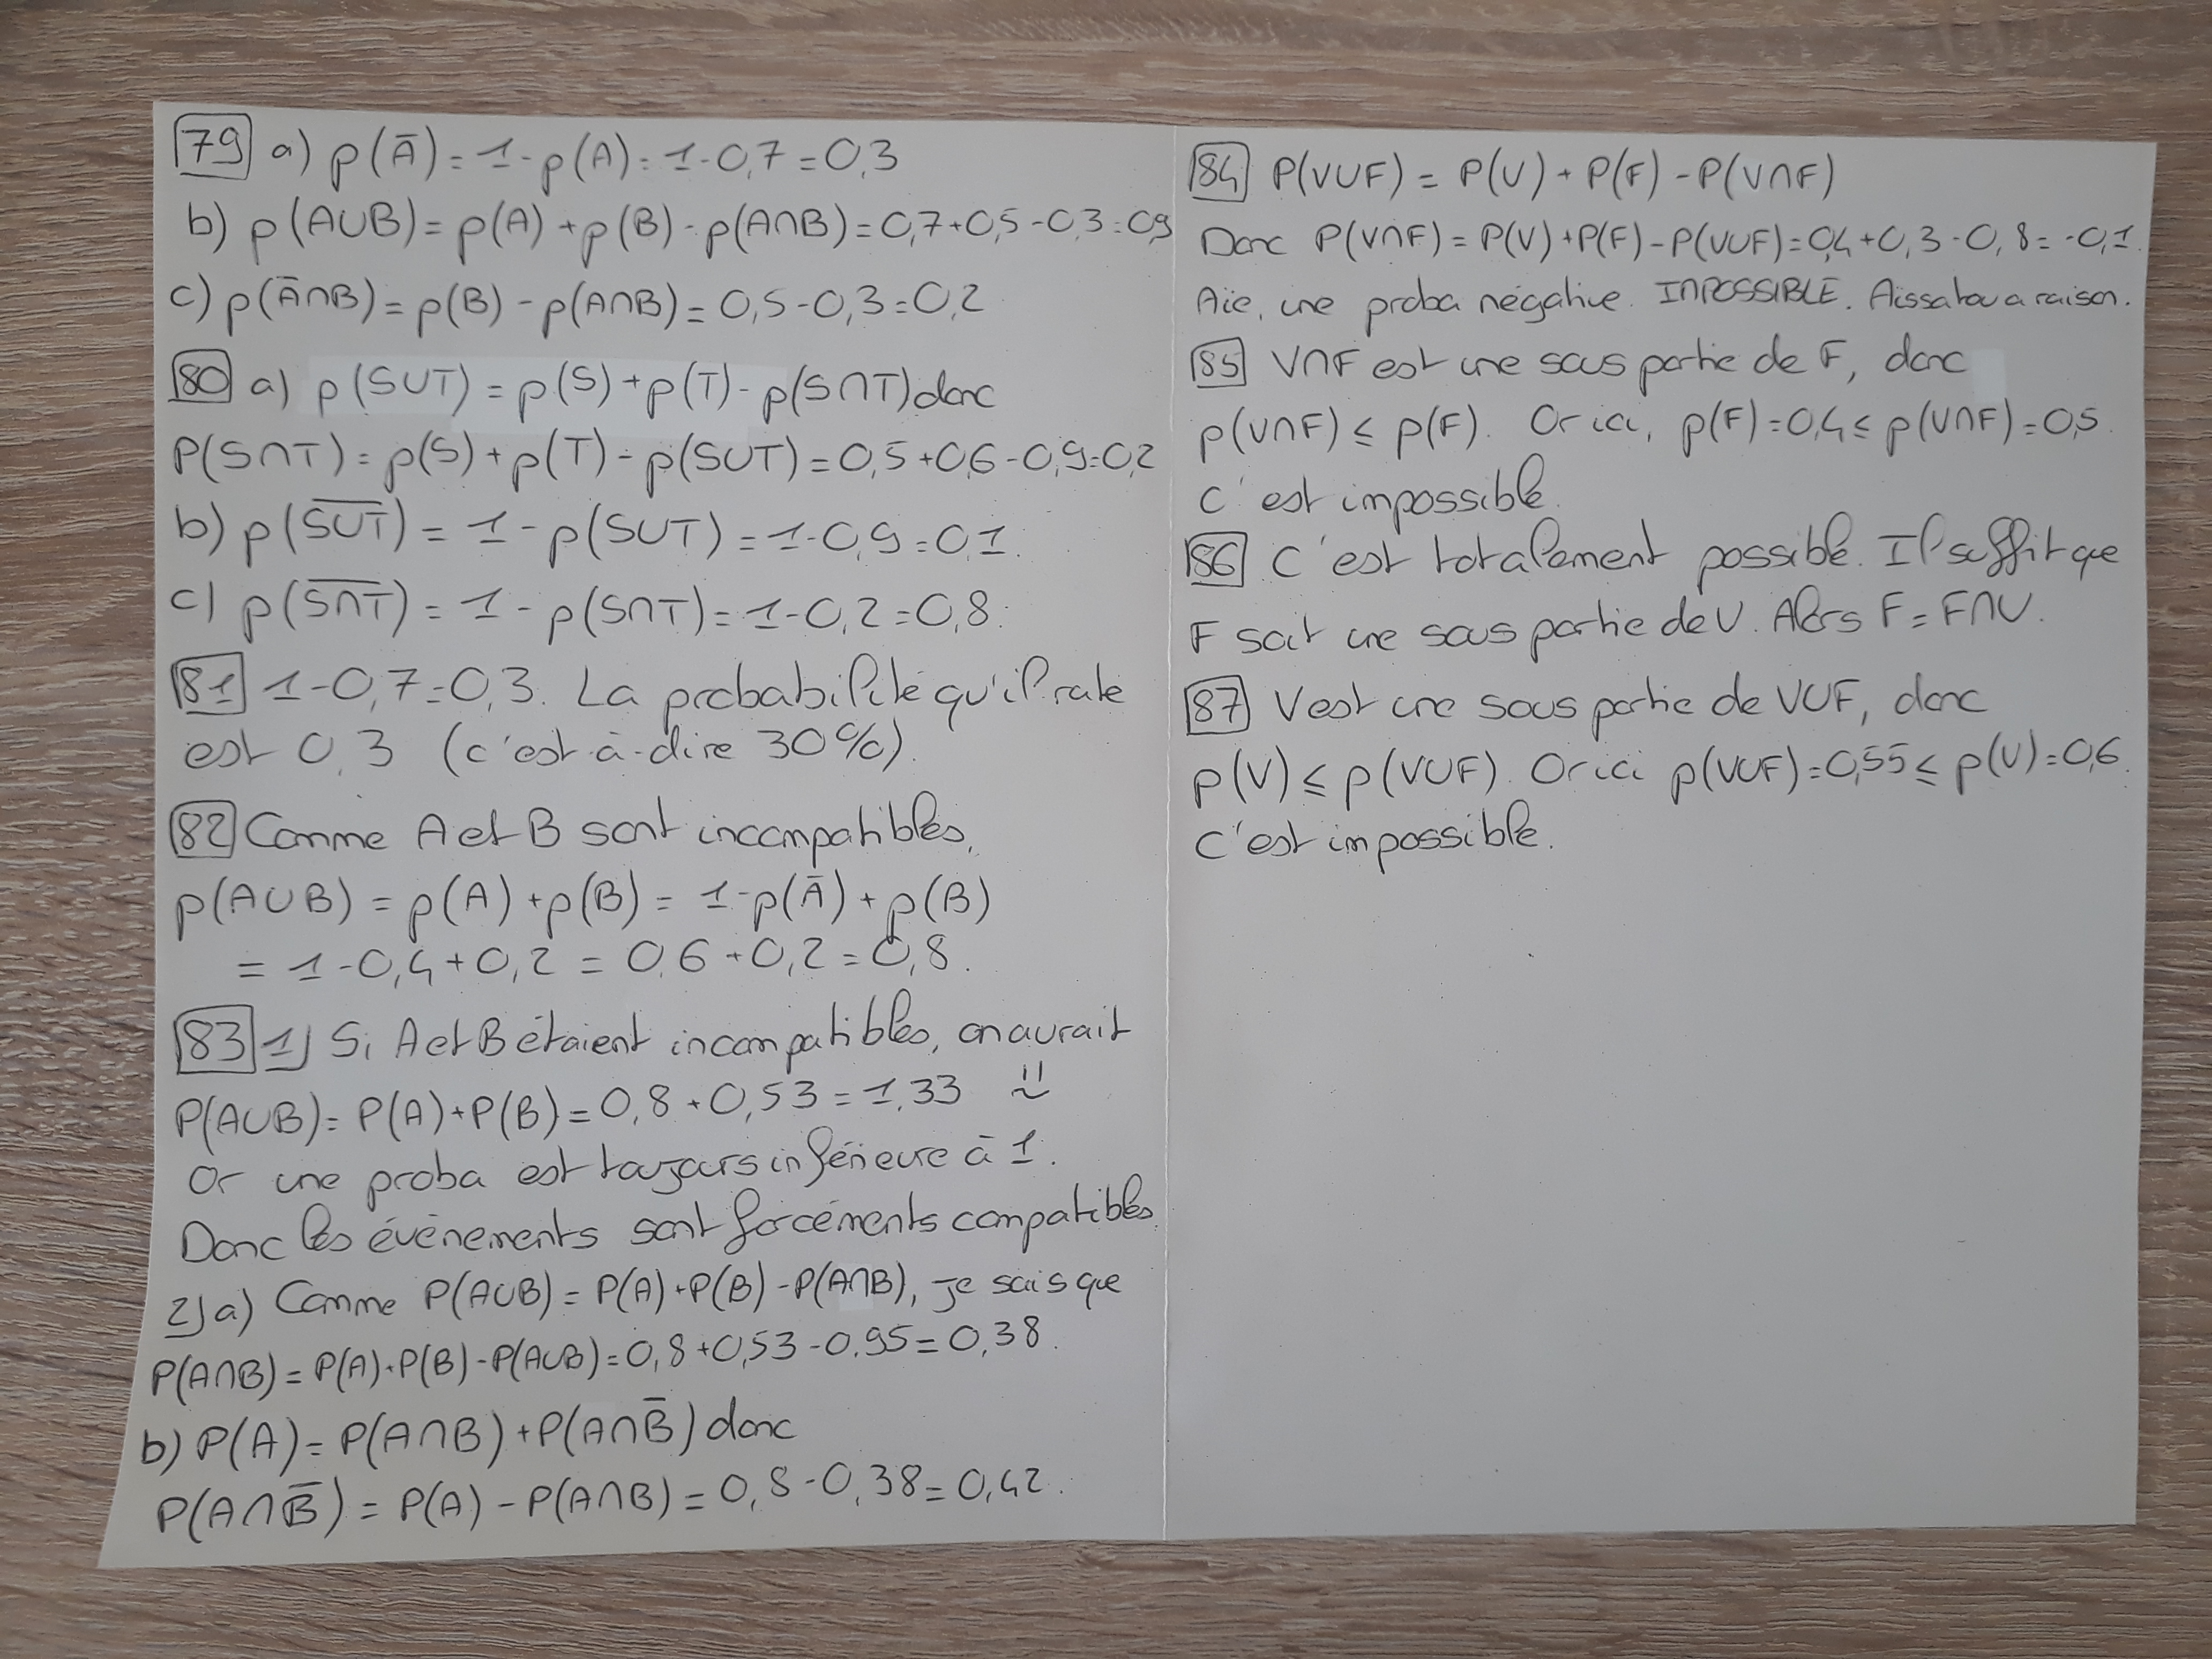 79 a) p(Ā) = 1 - p(A) = 1 - 0,7 = 0,3
b) p(A∪B) = p(A) + p(B) - p(A∩B) = 0,7 + 0,5 - 0,3 = 0,9
c) p(Ā∩B) = p(B) - p(A∩B) = 0,5 - 0,3 = 0,2
80 a) p(S∪T) = p(S) + p(T) - p(S∩T) donc
P(S∩T) = p(S) + p(T) - p(S∪T) = 0,5 + 0,6 - 0,9 = 0,2
b) p(S̅∪̅T̅) = 1 - p(S∪T) = 1 - 0,9 = 0,1.
c) p(S̅∩̅T̅) = 1 - p(S∩T) = 1 - 0,2 = 0,8.
81 1 - 0,7 = 0,3. La probabilité qu'il rate
est 0,3 (c'est-à-dire 30%).
82 Comme A et B sont incompatibles,
p(A∪B) = p(A) + p(B) = 1 - p(Ā) + p(B)
= 1 - 0,4 + 0,2 = 0,6 + 0,2 = 0,8.
83 1) Si A et B étaient incompatibles, on aurait
P(A∪B) = P(A) + P(B) = 0,8 + 0,53 = 1,33
Or une proba est toujours inférieure à 1.
Donc les événements sont forcéments compatibles.
2) a) Comme P(A∪B) = P(A) + P(B) - P(A∩B), je sais que
P(A∩B) = P(A) + P(B) - P(A∪B) = 0,8 + 0,53 - 0,95 = 0,38.
b) P(A) = P(A∩B) + P(A∩B̅) donc
P(A∩B̅) = P(A) - P(A∩B) = 0,8 - 0,38 = 0,42.
84 P(V∪F) = P(V) + P(F) - P(V∩F)
Donc P(V∩F) = P(V) + P(F) - P(V∪F) = 0,4 + 0,3 - 0,8 = -0,1.
Aïe, une proba négative. IMPOSSIBLE. Aïssatou a raison.
85 V∩F est une sous partie de F, donc
p(V∩F) ≤ p(F). Or ici, p(F) = 0,4 ≤ p(V∩F) = 0,5.
C'est impossible.
86 C'est totalement possible. Il suffit que
F soit une sous partie de V. Alors F = F∩V.
87 V est une sous partie de V∪F, donc
p(V) ≤ p(V∪F). Or ici p(V∪F) = 0,55 ≤ p(V) = 0,6.
C'est impossible.